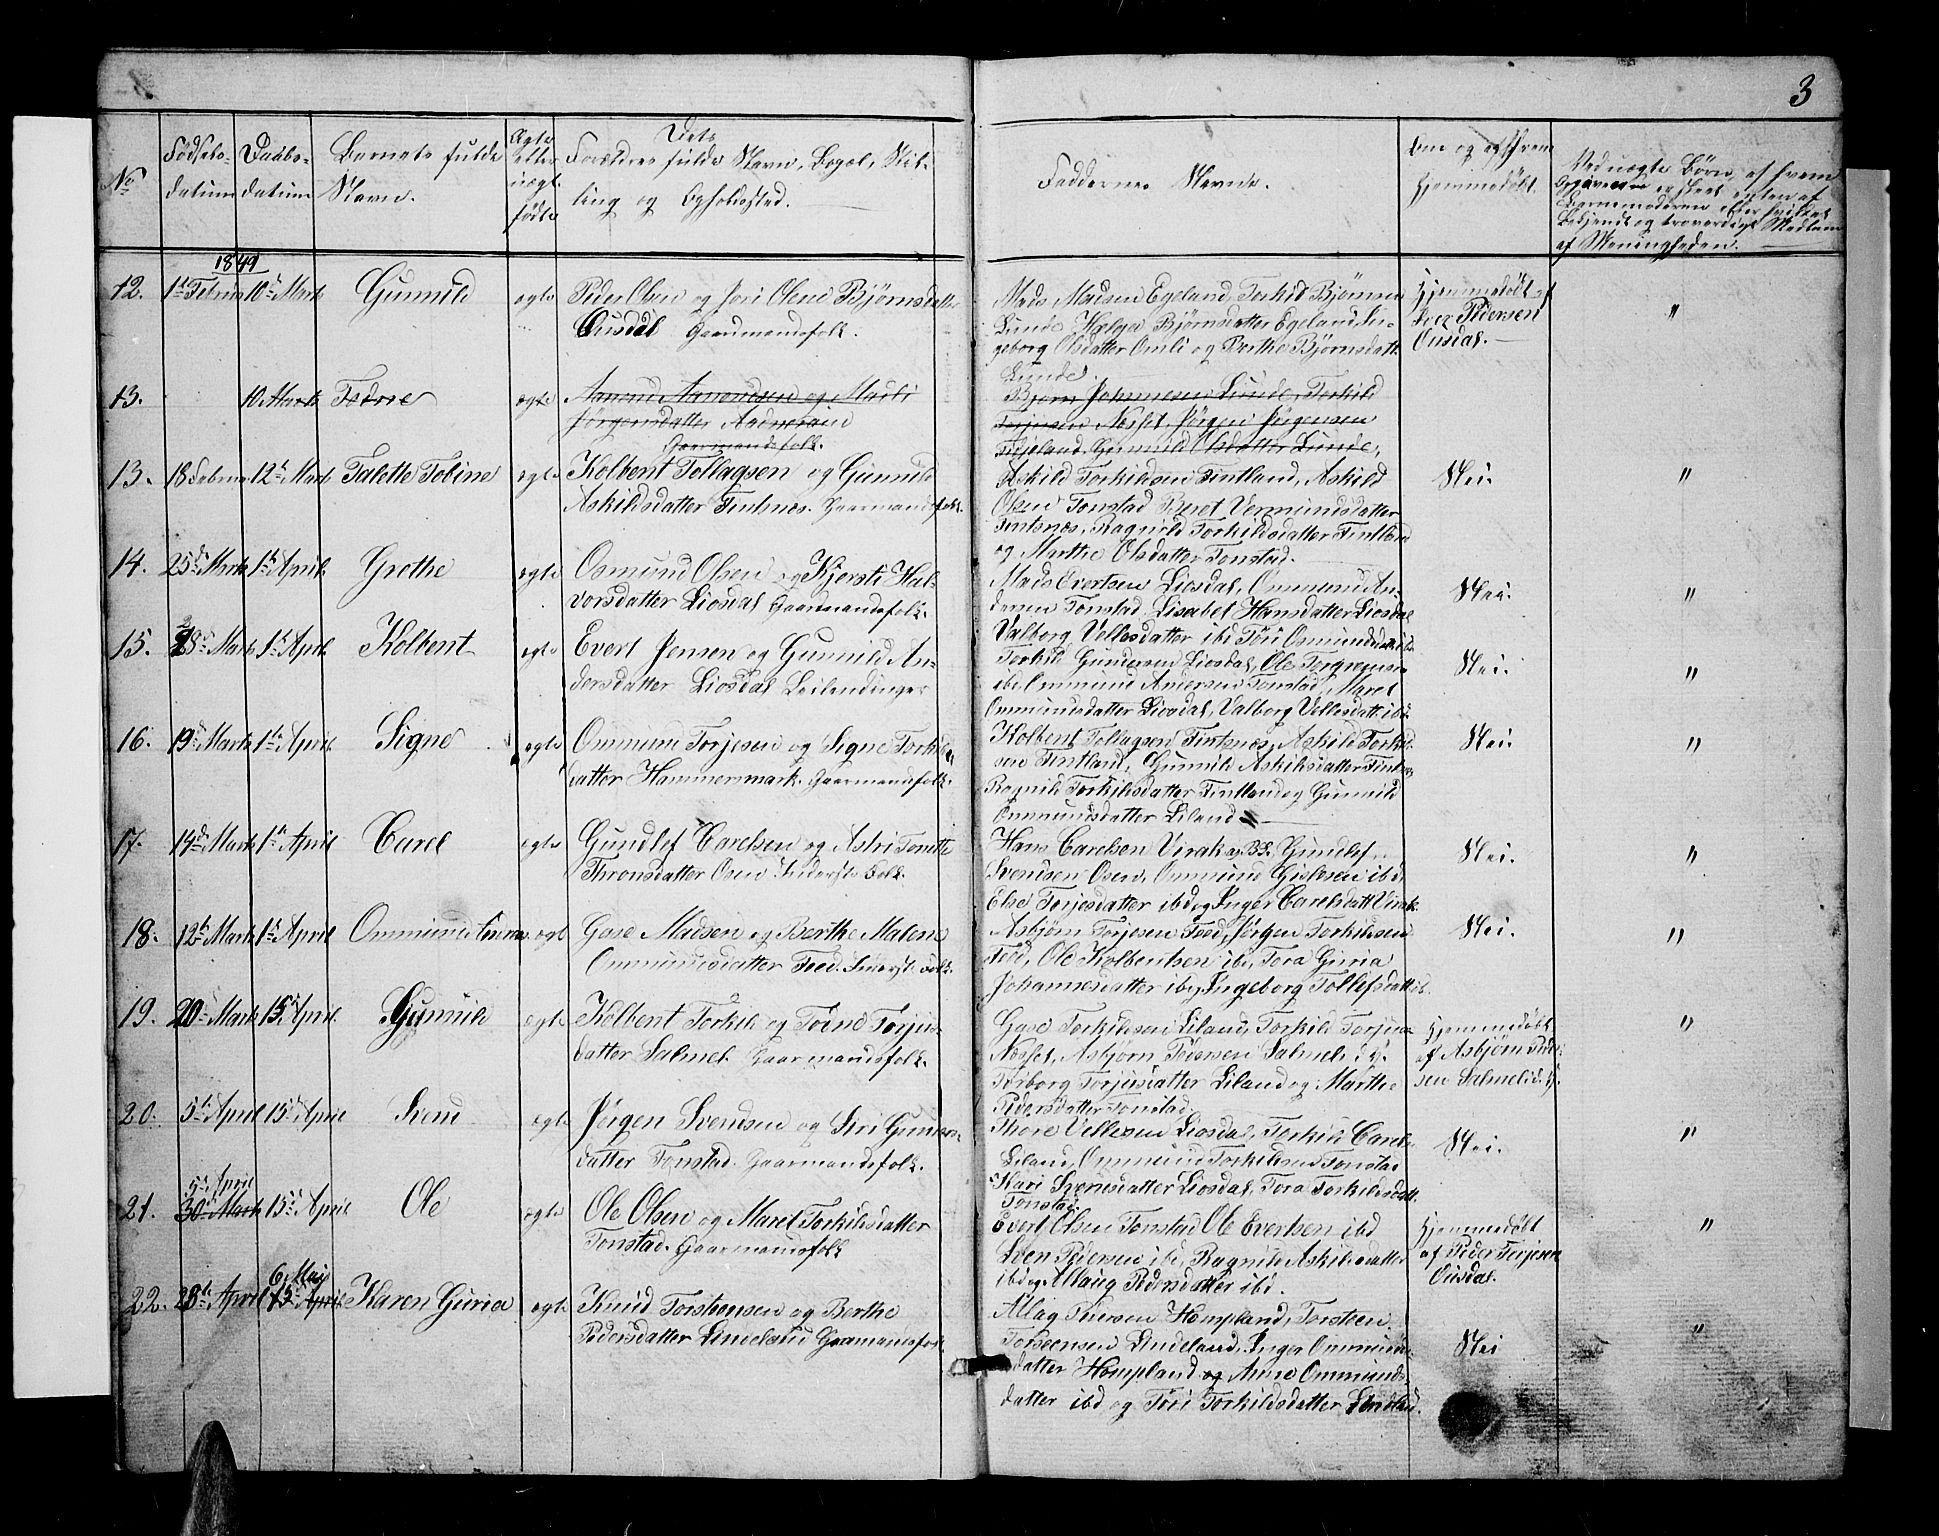 3
No
Fødsels-
datum
Daabs-
datum
Barnets fulde
Navn.
Ægte
eller
uægt.
født
Dets
Forældres fulde Navn, Bopæl, Stil-
ling og Opholdssted.
Faddernes Navne.
Om og af hvem
hjemmedøbt.
Ved uægte Børn, af hvem
Opgivelsen er skeet enten af
Barnemoderen eller hvilket
bekjendt og troværdigt Medlem
af Menigheden.
1849
12. 1ste Februar 10de Marts Gunnild ægte Peder Olsen og Jori Oline Bjørnsdatter
Ousdal Gaardmandsfolk.
Mads Madsen Egeland, Torkild Bjørnsen
Lunde, Helga Bjørnsdatter Egeland, In-
geborg Olsdatter Omli og Berthe Bjørnsdatt.
Lunde.
Hjemmedøbt af
Iver Pedersen
Ousdal.
"
13. 10 Marts Tedne ægte Aanund Aanondsen og Marli
Jørgensdatter
Gaarmandsfolk.
Bjørn Johannesen Lunde, Torkild
Torjusen Nesset, Jørgen Jørgensen
Gunnild Olsdatter Lunde,
13. 18 Februar 12te Marts Talette Tobine ægte Kolbent Tollagsen og Gunnild
Askildsdatter Fintsnes. Gaarmandsfolk.
Askild Torkildsen Fintland, Askild
Olsen Tonstad Beret Vermundsdatter
Fintsnes, Ragnild Torkildsdatter Fintland
og Marthe Olsdatter Tonstad.
Nei.
"
14. 25de Marts 1ste April Grethe ægte Osmund Olsen og Kjersti Hal-
vorsdatter Liosdal Gaarmandsfolk.
Mads Evertsen Liosdal, Ommund An-
dersen Tonstad, Lisabet Hansdatter Liosdal
Valborg Vellesdatter ibd Tori Osmundsdatt ibd
Nei.
"
15. 28de Marts 1ste April Kolbent ægte Evert Jensen og Gunnild An-
dersdatter Liosdal Leilendinger
Torkild Gundersen Liosdal, Ole
ibd, Ommund Andersen Tonstad, Maret
Ommundsdatter Liosdal, Valborg Vellesdatt ibd.
Nei.
"
16. 19de Marts 1ste April Signe ægte Ommund Torjesen og Signe Torkilds-
datter Hammersmark. Gaarmandsfolk.
Kolbent Tollagsen Fintsnes, Askild Torkild-
sen Fintland, Gunnild Askildsdatter Fintsnes
Ragnild Torkildsdatter Fintland og Gunnild
Ommundsdatter Liland.
Nei.
"
17. 14de Marts 1ste April Carel ægte Gundlef Carelsen og Astri Tonette
Thronsdatter Osen Inderstefolk.
Hans Carelsen Virak Gundlef
Svendsen Osen, Ommund Gislesen ibd
Else Torjesdatter ibd og Inger Carelsdatt Virak.
Nei.
"
18. 12te Marts 1ste April Ommund ægt Gase Madsen og Berthe Malene
Ommundsdatter Feed. Inderste Folk.
Asbjørn Torjesen Feed, Jørgen Torkildsen
Feed, Ole Kolbentsen ibd, Tora Guria
Johannesdatter ibd og Ingeborg Tollefsdatt ibd.
Nei.
"
19. 20de Marts 15de April Gunnild ægte Kolbent Torkils og Torine Torjus-
datter Salmel. Gaarmandsfolk.
Gase Torkildsen Liland, Torkild Torjusen
Nesset, Asbjørn Pedersen Salmeli
Torborg Torjusdatter Liland og Marthe
Pedersdatter Tonstad.
Hjemmedøbt
af Asbjørn Peder-
sen Salmeli
"
20. 5te April 15de April Svend ægte Jørgen Svendsen og Siri Gunders-
datter Tonstad. Gaarmandsfolk.
Thore Vellesen Liosdal, Torkild Carels
Liland, Ommund Torkildsen Tonstad
Kari Svensdatter Liosdal, Tora Torkildsdatt
Tonstad.
Nei.
"
21. 5te April 30te Marts 15de April Ole ægte Ole Olsen og Maret Torkildsdatter
Tonstad. Gaarmandsfolk
Evert Olsen Tonstad Ole Evertsen ibd
Sven Pedersen ibd, Ragnild Askildsdatter
ibd og Allaug Pedersdatter ibd.
Hjemmedøbt
af Peder Torjesen
Ousdal.
"
22. 28te April 6 Mai 15de April Karen Guria ægte Knud Torstensen og Berthe
Pedersdatter Lindeland Gaarmandsfolk.
Alag Iversen Hompland, Torsteen
Torsteensen Lindeland, Inger Ommunds-
datter Hompland og Anne Ommunds-
datter ibd og Tori Torkildsdatter Lindland.
Nei
"